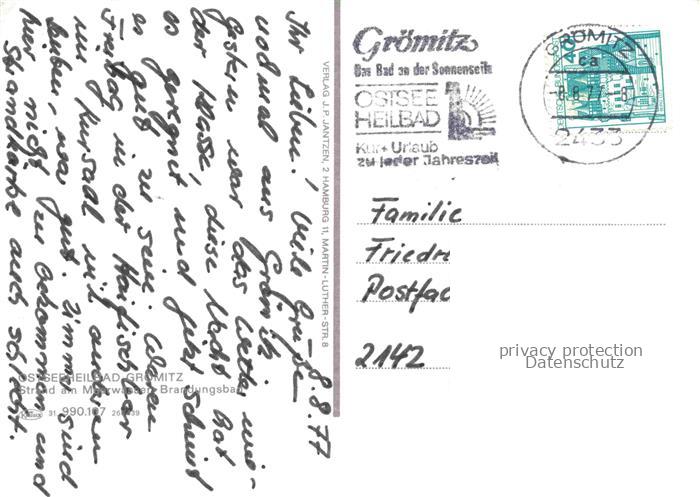 8.8.77
Ihr Lieben! Viele Grüße
nochmal aus Grömitz.
Gestern war das Wetter nie-
der Klasse, diese Nacht hat
es geregnet und jetzt scheint
es gut zu sein. Waren
Freitag in der Haifischbar
im Kursaal mit anderen
war gut. Zimmer sind
hier nicht zu bekommen und
Strandkörbe auch schlecht.
VERLAG J.P. JANTZEN, 2 HAMBURG 11, MARTIN-LUTHER-STR. 8
OSTSEEHEILBAD GRÖMITZ
Strand am Meerwasser-Brandungsbad
31 990.107
Grömitz
Das Bad an der Sonnenseite
OSTSEE
HEILBAD
Kur + Urlaub
zu jeder Jahreszeit
GRÖMITZ
ca
-8.8.77-8
2433
40
Familie
Friedr
Postfac
2142
privacy protection
Datenschutz